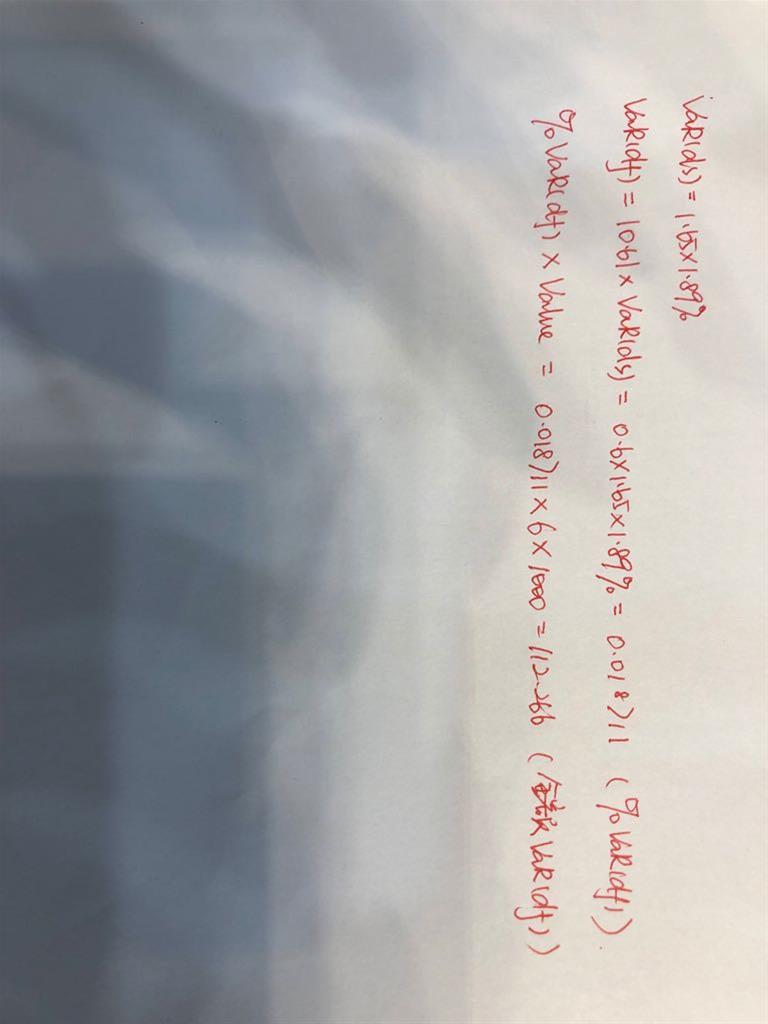 VaR(ds) = 1.65×1.89%
VaR(df) = |0.6|× VaR(ds) = 0.6×1.65×1.89% = 0.018711 (%VaR(df))
%VaR(df) × Value = 0.018711×6×1000 = 112.266 (金额VaR(df))